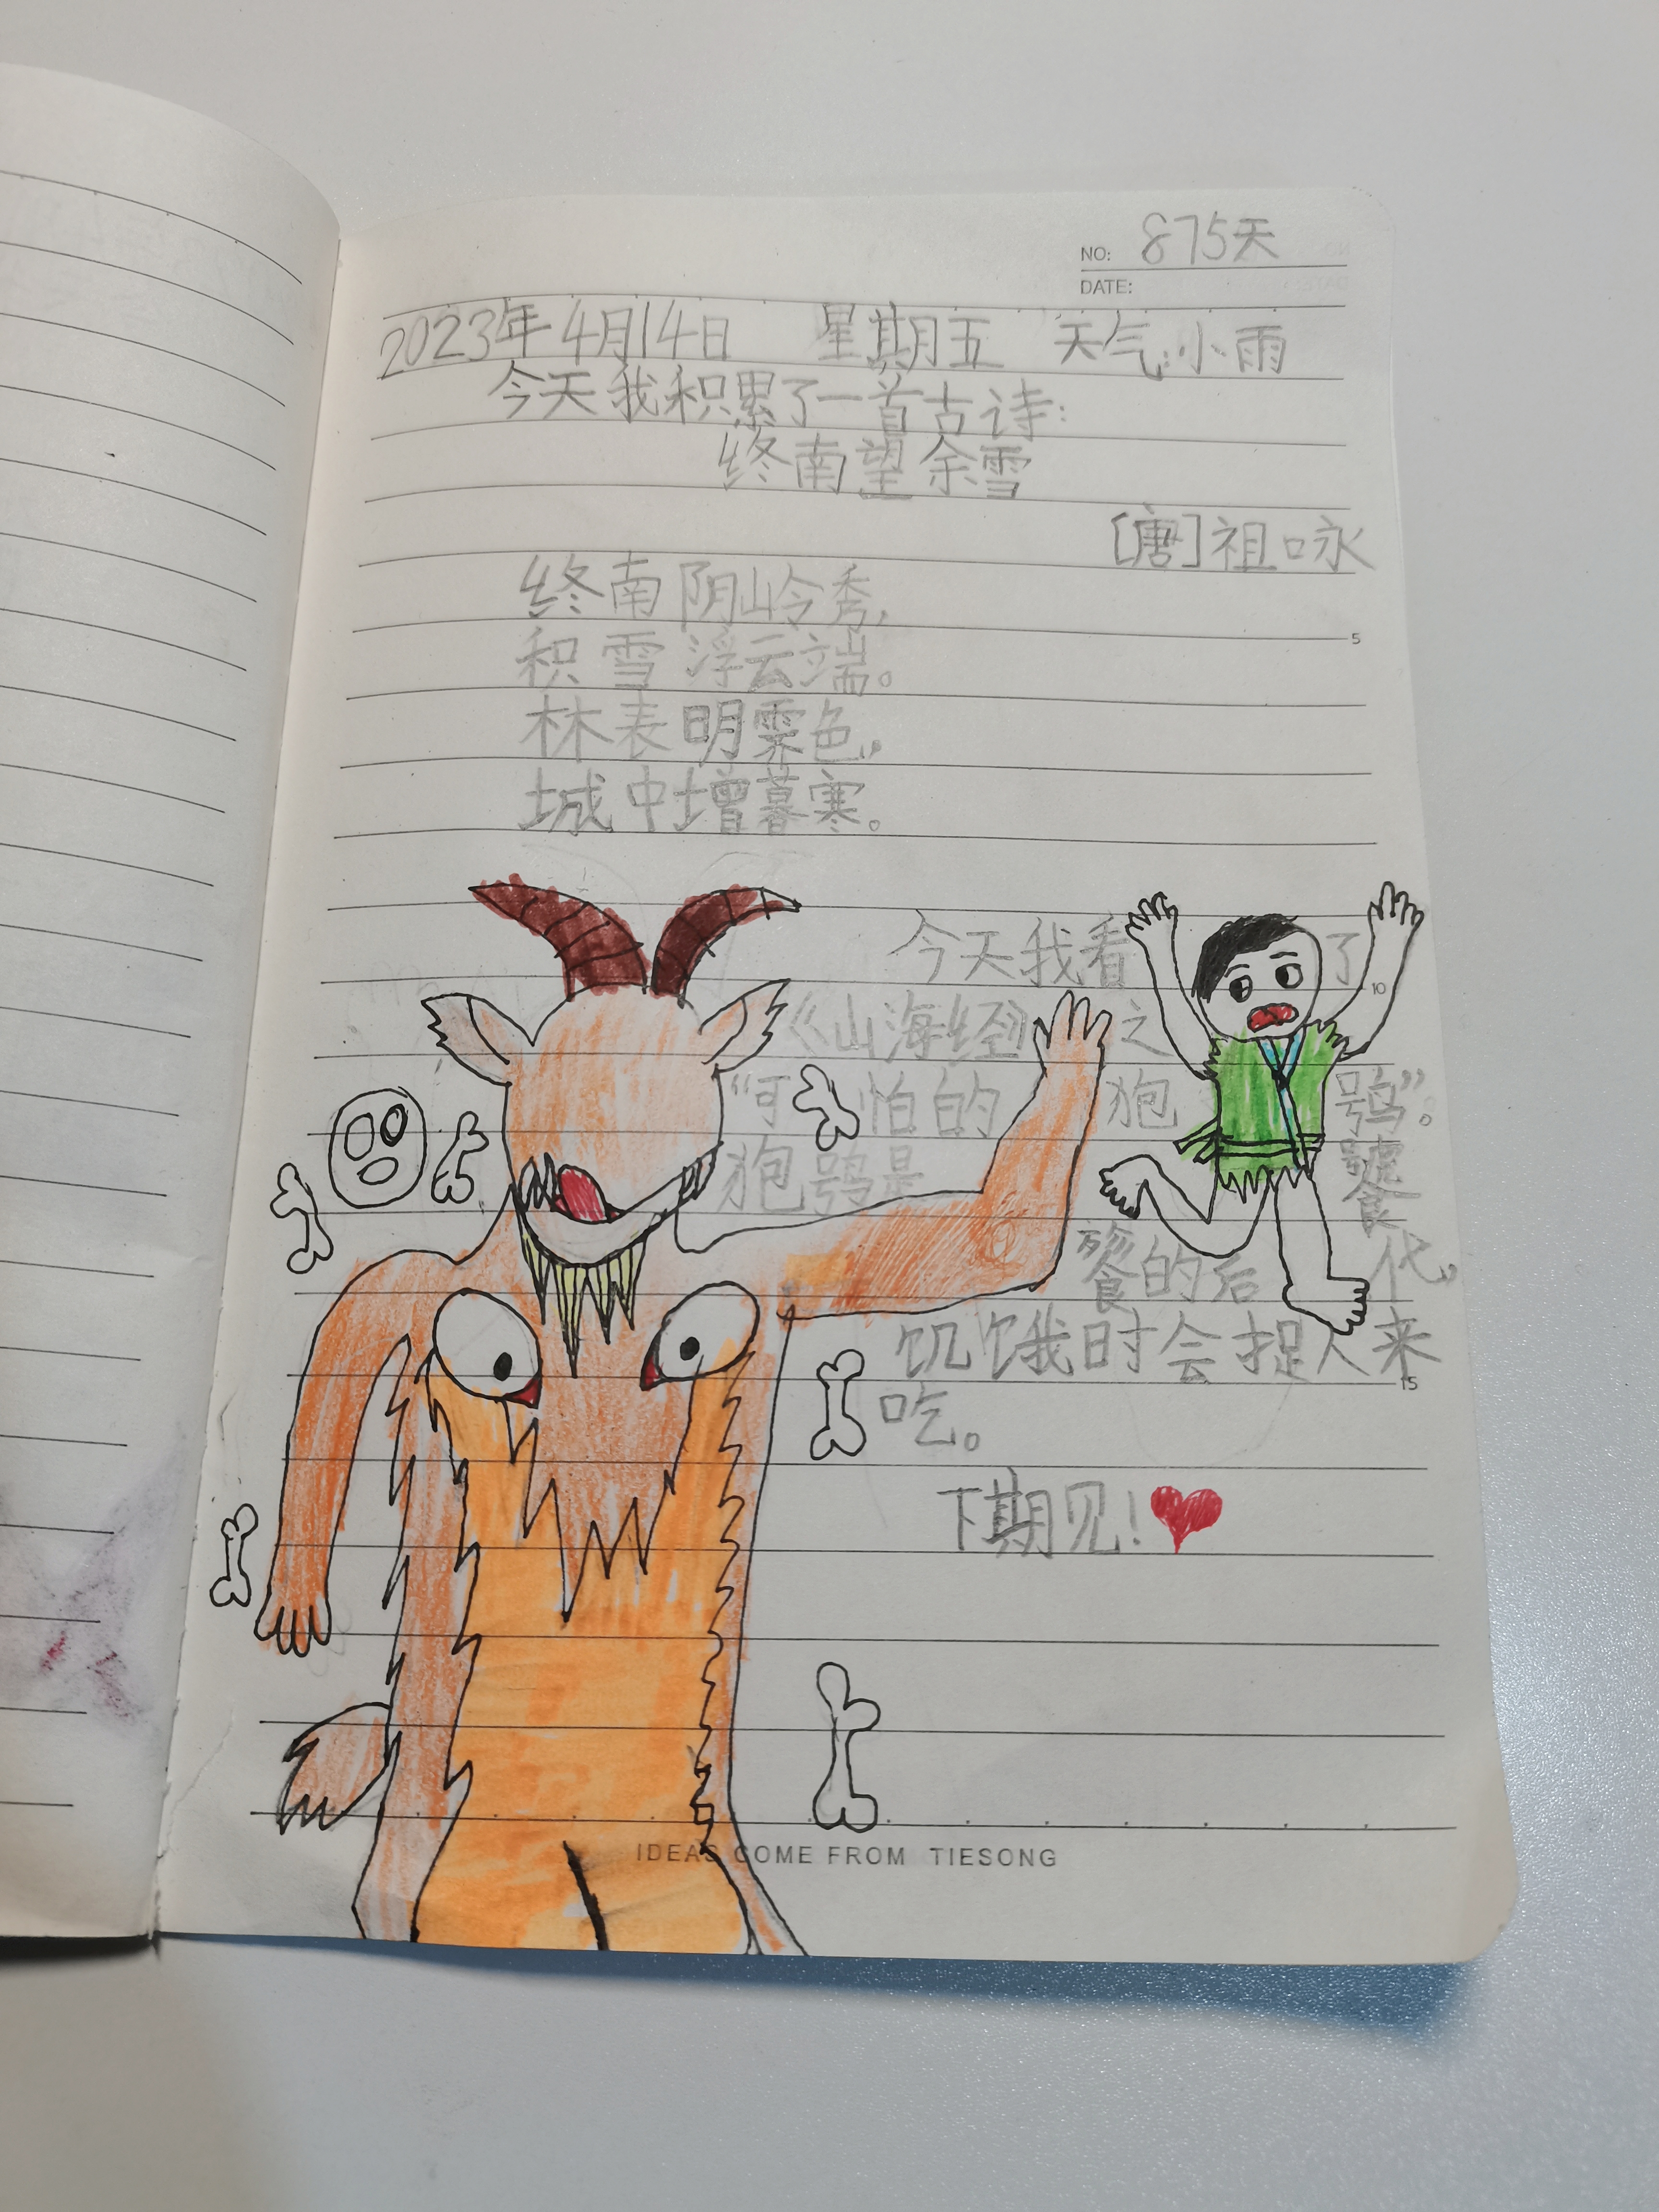 NO: 875天
DATE:
2023年4月14日 星期五 天气:小雨
今天我积累了一首古诗:
终南望余雪
[唐]祖咏
终南阴岭秀,
积雪浮云端。
林表明霁色,
城中增暮寒。
今天我看了
《山海经》之
“可怕的狍鸮”。
狍鸮是饕
餮的后代。
饥饿时会捉人来
吃。
下期见!
5
10
15
IDEAS COME FROM TIESONG